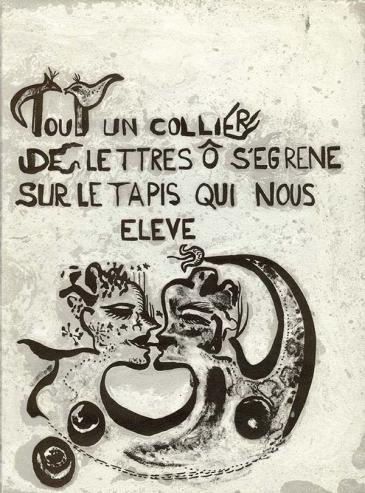 TOUT UN COLLIER
DE LETTRES Ô S'EGRENE
SUR LE TAPIS QUI NOUS
ELEVE